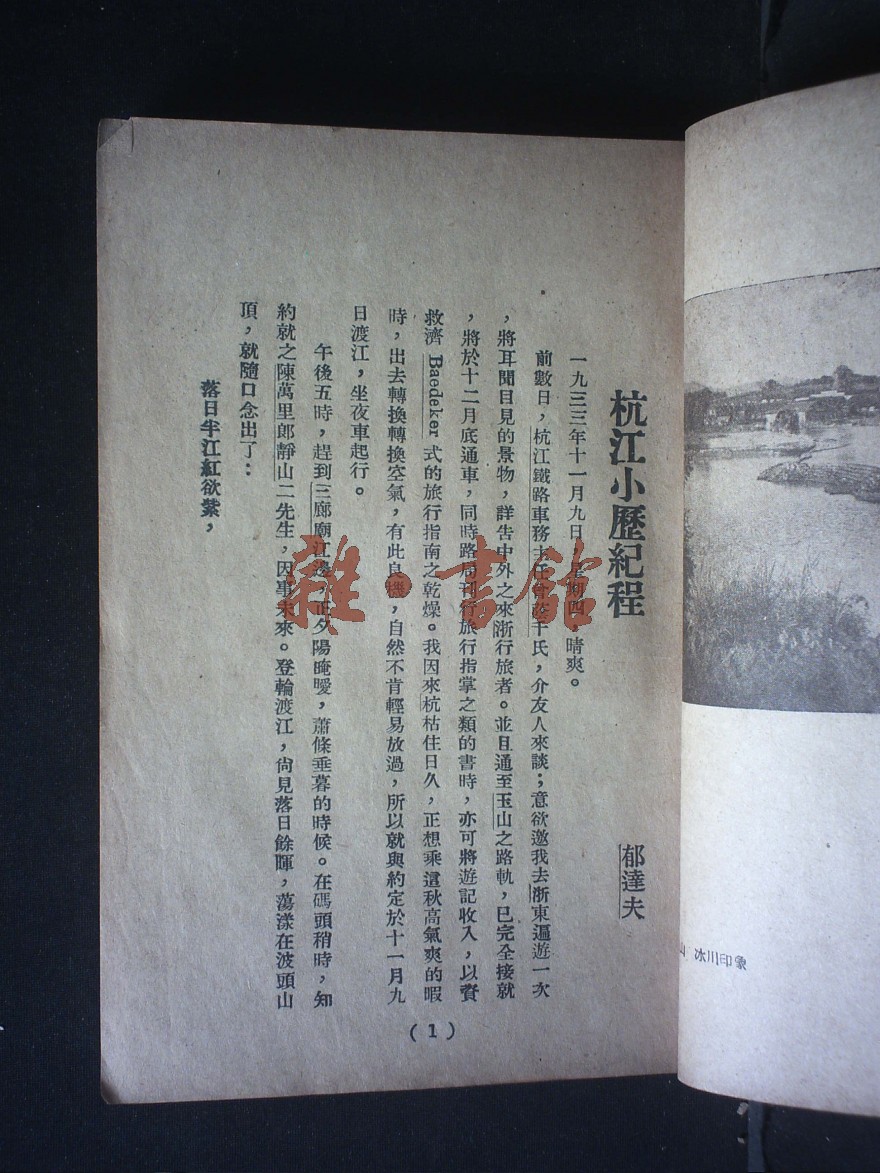 杭江小歷紀程
郁達夫
一九三三年十一月九日,星期四,晴爽。
前數日,杭江鐵路車務主任曾蔭千氏,介友人來談;意欲邀我去浙東遍遊一次
,將耳聞目見的景物,詳告中外之來浙行旅者。並且通至玉山之路軌,已完全接就
,將於十二月底通車,同時路局刊行旅行指掌之類的書時,亦可將遊記收入,以資
救濟 Baedeker 式的旅行指南之乾燥。我因來杭枯住日久,正想乘這秋高氣爽的暇
時,出去轉換轉換空氣,有此良機,自然不肯輕易放過,所以就與約定於十一月九
日渡江,坐夜車起行。
午後五時,趕到三廊廟江邊,正夕陽晻曖,蕭條垂暮的時候。在碼頭稍時,知
約就之陳萬里郎靜山二先生,因事未來。登輪渡江,尙見落日餘暉,蕩漾在波頭山
頂,就隨口念出了:
落日半江紅欲紫,
(1)
山 冰川印象
雜·書館